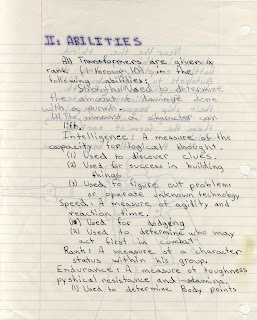 II: ABILITIES
All Transformers are given a
rank (1 through 10) in the
following abilities:
Strength: Used to determine
the amount of damage done
with a punch
(2) The amount a character can
lift.
Intelligence: A measure of the
capacity for logical thought.
(1) Used to discover clues.
(2) Used for success in building
things
(3) Used to figure out problems
or operate unknown technology
Speed: A measure of agility and
reaction time.
(1) Used for dodging
(2) Used to determine who may
act first in combat.
Rank: A measure of a character
status within his group.
Endurance: A measure of toughness
pyshical resistance and stamina.
(1) Used to determine Body points